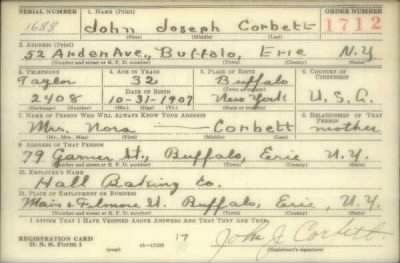 SERIAL NUMBER 1. NAME (Print) ORDER NUMBER
1688 John Joseph Corbett 1712
(First) (Middle) (Last)
2. ADDRESS (Print)
52 Arden Ave., Buffalo, Erie N.Y
(Number and street or R. F. D. number) (Town) (County) (State)
3. TELEPHONE 4. AGE IN YEARS 5. PLACE OF BIRTH 6. COUNTRY OF CITIZENSHIP
Taylor 32 Buffalo
DATE OF BIRTH (Town or county)
2408 10-31-1907 New York U.S.A.
(Exchange) (Number) (Mo.) (Day) (Yr.) (State or country)
7. NAME OF PERSON WHO WILL ALWAYS KNOW YOUR ADDRESS 8. RELATIONSHIP OF THAT PERSON
Mrs. Nora — Corbett mother
(Mr., Mrs., Miss) (First) (Middle) (Last)
9. ADDRESS OF THAT PERSON
79 Garner St., Buffalo, Erie N.Y.
(Number and street or R. F. D. number) (Town) (County) (State)
10. EMPLOYER'S NAME
Hall Baking Co.
11. PLACE OF EMPLOYMENT OR BUSINESS
Main & Filmore St. Buffalo, Erie, N.Y.
(Number and street or R. F. D. number) (Town) (County) (State)
I AFFIRM THAT I HAVE VERIFIED ABOVE ANSWERS AND THAT THEY ARE TRUE.
REGISTRATION CARD
D. S. S. Form 1 17 John J Corbett
(Registrant's signature)